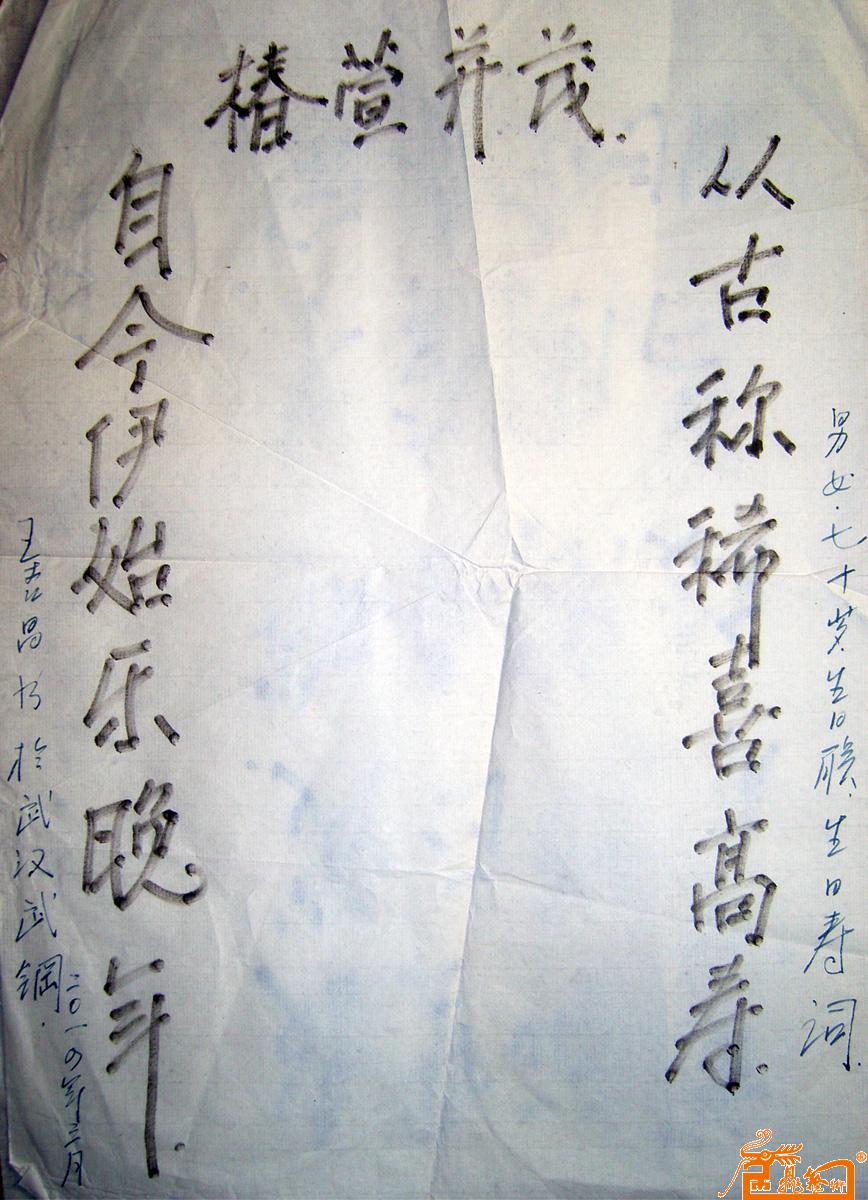 椿萱并茂.
从古称稀喜高寿.
自今伊始乐晚年.
男女.七十岁.生日联.生日寿词.
昌书于武汉武钢.
二〇一〇年三月